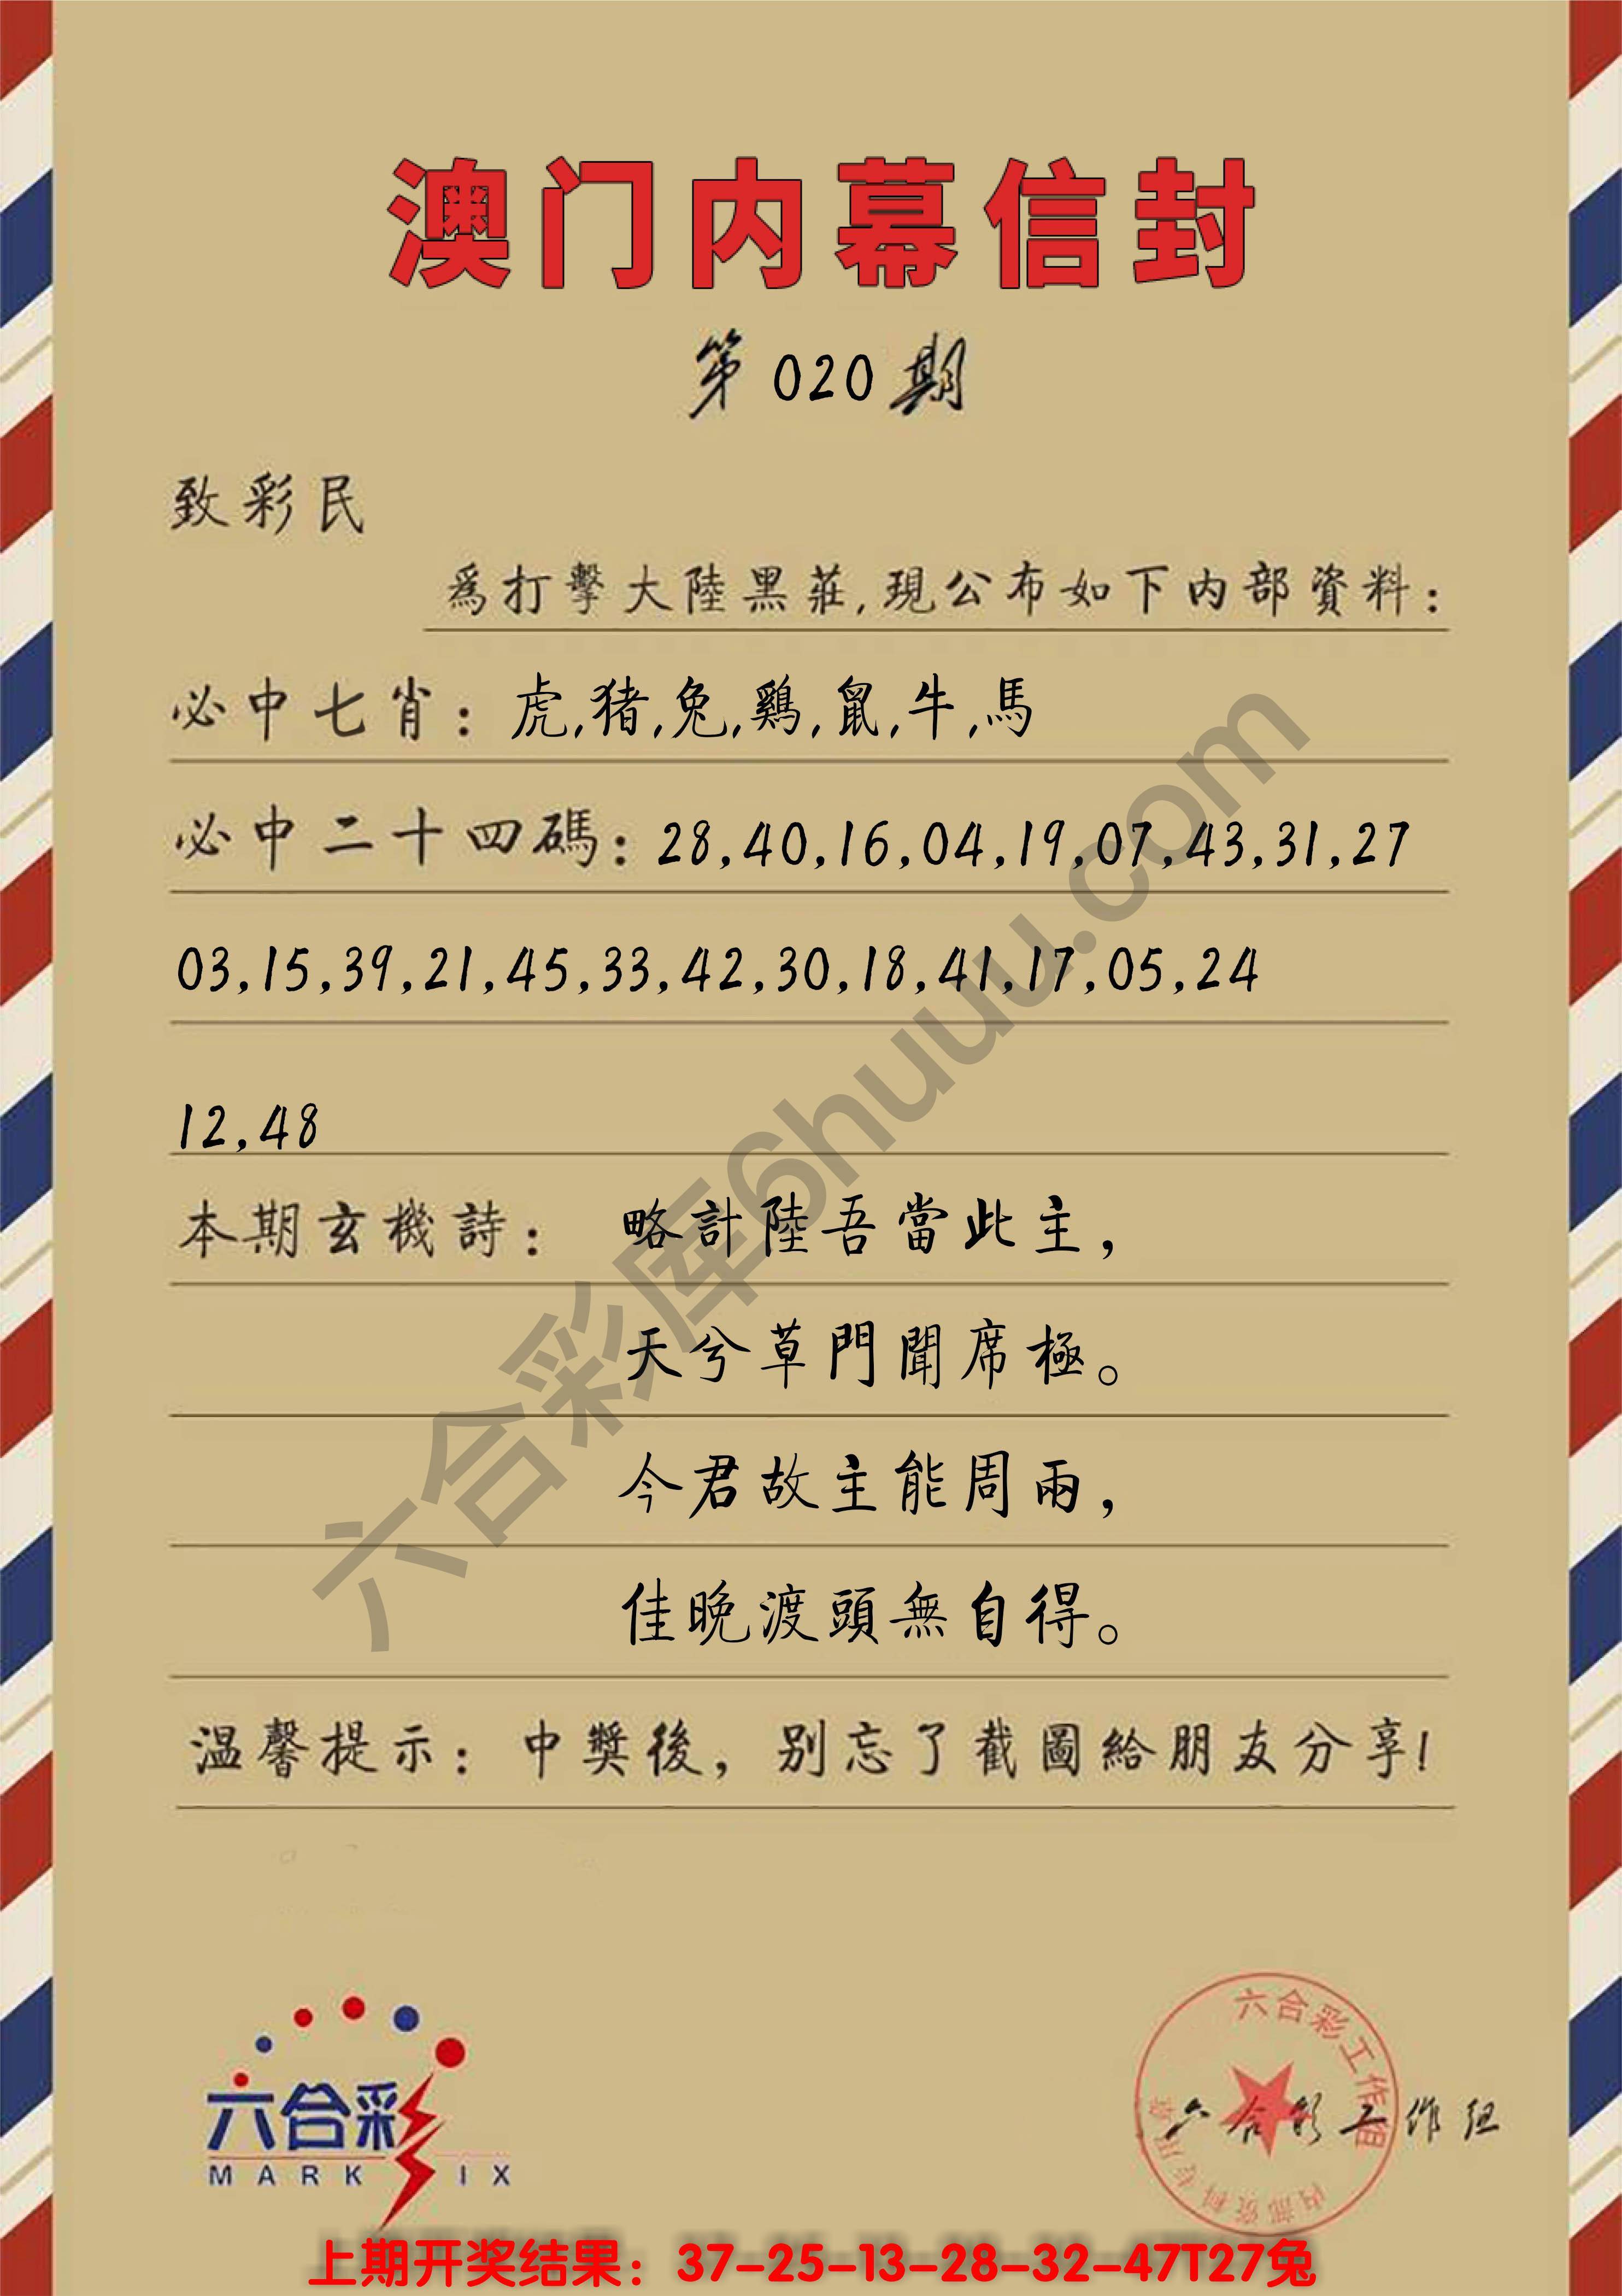 澳门内幕信封
第020期
致彩民
爲打擊大陸黑莊,現公布如下内部資料:
必中七肖: 虎,猪,兔,鷄,鼠,牛,馬
必中二十四碼: 28,40,16,04,19,07,43,31,27
03,15,39,21,45,33,42,30,18,41,17,05,24
12,48
本期玄機詩: 略計陸吾當此主,
天兮草門聞席極。
今君故主能周兩,
佳晚渡頭無自得。
温馨提示: 中獎後, 别忘了截圖給朋友分享!
六合彩库6huuu.com
六合彩
MARK SIX
六合彩工作组
六合彩工作组
内部资料专用章
上期开奖结果: 37-25-13-28-32-47T27兔